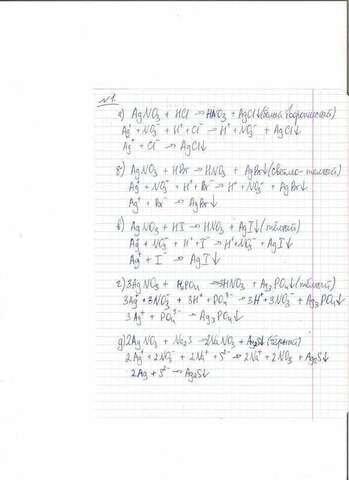 №1.
а) AgNO₃ + HCl → HNO₃ + AgCl↓ (белый творожистый)
Ag⁺ + NO₃⁻ + H⁺ + Cl⁻ → H⁺ + NO₃⁻ + AgCl↓
Ag⁺ + Cl⁻ → AgCl↓
б) AgNO₃ + HBr → HNO₃ + AgBr↓ (светло-желтый)
Ag⁺ + NO₃⁻ + H⁺ + Br⁻ → H⁺ + NO₃⁻ + AgBr↓
Ag⁺ + Br⁻ → AgBr↓
в) AgNO₃ + HI → HNO₃ + AgI↓ (жёлтый)
Ag⁺ + NO₃⁻ + H⁺ + I⁻ → H⁺ + NO₃⁻ + AgI↓
Ag⁺ + I⁻ → AgI↓
г) 3AgNO₃ + H₃PO₄ → 3HNO₃ + Ag₃PO₄↓ (жёлтый)
3Ag⁺ + 3NO₃⁻ + 3H⁺ + PO₄³⁻ → 3H⁺ + 3NO₃⁻ + Ag₃PO₄↓
3Ag⁺ + PO₄³⁻ → Ag₃PO₄↓
д) 2AgNO₃ + Na₂S → 2NaNO₃ + Ag₂S↓ (чёрный)
2Ag⁺ + 2NO₃⁻ + 2Na⁺ + S²⁻ → 2Na⁺ + 2NO₃ + Ag₂S↓
2Ag + S²⁻ → Ag₂S↓